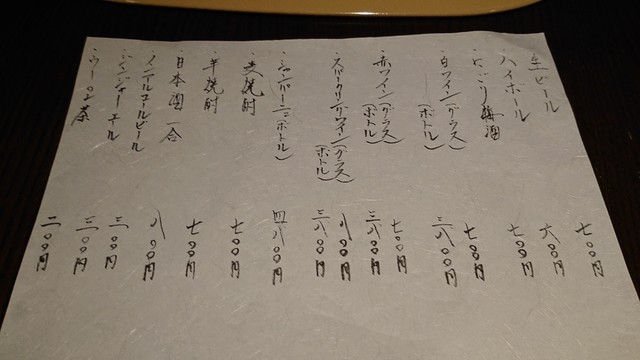 ・生ビール 七〇〇円
・ハイボール 六〇〇円
・にごり梅酒 七〇〇円
・白ワイン(グラス) 七〇〇円
(ボトル) 三八〇〇円
・赤ワイン(グラス) 七〇〇円
(ボトル) 三八〇〇円
・スパークリングワイン(グラス) 八〇〇円
(ボトル) 三八〇〇円
・シャンパーニュ(ボトル) 四八〇〇円
・麦焼酎 七〇〇円
・芋焼酎 七〇〇円
・日本酒一合 八〇〇円
・ノンアルコールビール 三〇〇円
・ジンジャーエール 三〇〇円
・ウーロン茶 二〇〇円